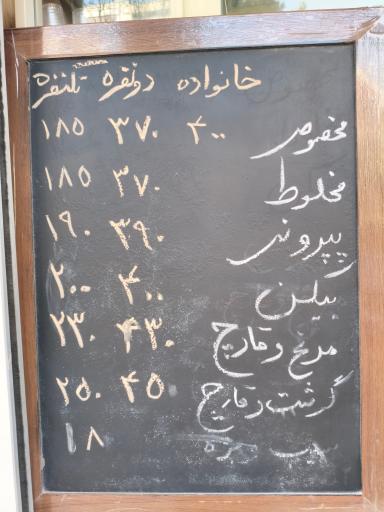 خانواده دونفره تکنفره
مخصوص ۴۰۰ ۳۷۰ ۱۸۵
مخلوط ۳۷۰ ۱۸۵
پپرونی ۳۹۰ ۱۹۰
بیکن ۴۰۰ ۲۰۰
مرغ و قارچ ۴۳۰ ۲۳۰
گوشت و قارچ ۴۵۰ ۲۵۰
سیب ۱۸